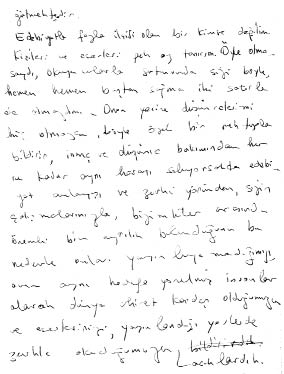 gütmektedir.
Edebiyatla fazla ilgili olan bir kimse değilim
Kişileri ve eserleri pek az tanırım. Öyle olma-
saydı, okuyucularla satırında sizi böyle,
hemen hemen baştan sığma iki satırla
ele almazdım. Onun yerine düşüncelerimi
hiç olmazsa, böyle özel bir mektupla
bildirir, inanç ve düşünce bakımından her
ne kadar aynı havayı soluyorsak da edebi-
yat anlayışı ve zevki yönünden, sizin
çalışmalarınızla, bizimkiler arasında
önemli bir ayrılık bulunduğunu bu
nedenle onları yayınlayamadığımızı,
ama aynı hedefe yönelmiş insanlar
olarak dünya ahiret kardeş olduğumuzu
ve eserlerinizi, yayınlandığı yerlerde
zevkle okuduğumuzu,
açıklardık.